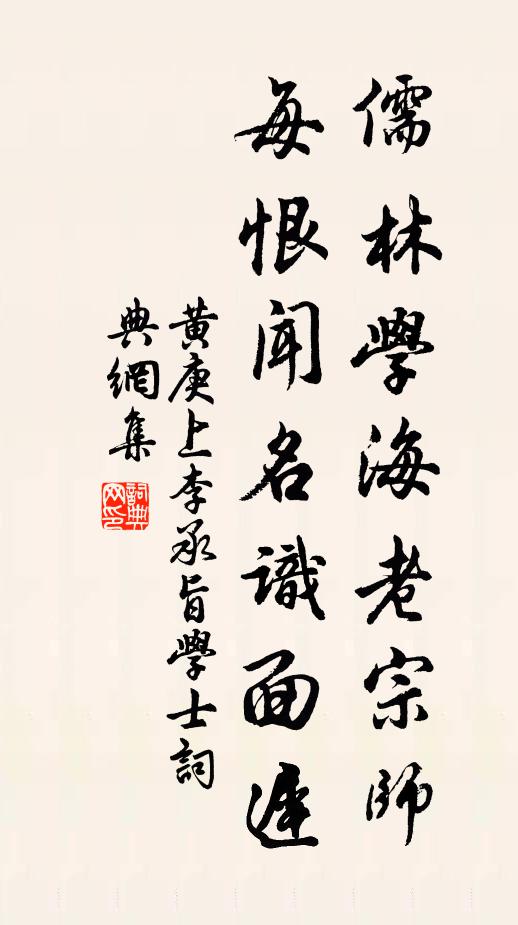 儒林學海老宗師
每恨聞名識面遲
黄庚上李承旨學士詞
典網集
詞典網印